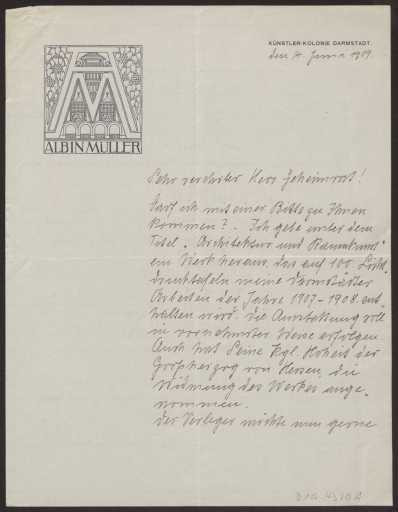 KÜNSTLER-KOLONIE DARMSTADT.
ALBIN MÜLLER
Sehr verehrter Herr Geheimrat!
Darf ich mit einer Bitte zu Ihnen
kommen? . Ich gebe unter dem
Titel „Architektur und Raumkunst“
ein Werk heraus, das auf 100 Licht-
drucktafeln meine Darmstädter
Arbeiten der Jahre 1907-1908 ent-
halten wird. Die Ausstattung soll
in vornehmster Weise erfolgen.
Auch hat Seine Kgl. Hoheit der
Großherzog von Hessen die
Widmung des Werkes ange-
nommen.
Der Verleger möchte nun gerne